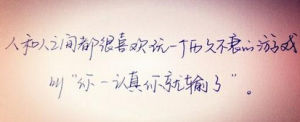 人和人之间都很喜欢玩一个历久不衰的游戏
叫“你一认真你就输了”。